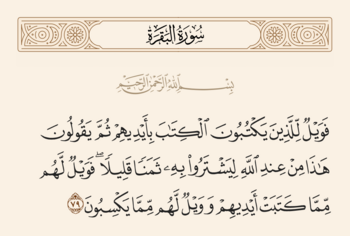 سُورَةُ البَقَرَةِ
بِسْمِ اللَّهِ الرَّحْمَٰنِ الرَّحِيمِ
فَوَيْلٌ لِّلَّذِينَ يَكْتُبُونَ الْكِتَٰبَ بِأَيْدِيهِمْ ثُمَّ يَقُولُونَ
هَٰذَا مِنْ عِندِ اللَّهِ لِيَشْتَرُوا۟ بِهِۦ ثَمَنًا قَلِيلًا ۖ فَوَيْلٌ لَّهُم
مِّمَّا كَتَبَتْ أَيْدِيهِمْ وَوَيْلٌ لَّهُم مِّمَّا يَكْسِبُونَ ٧٩